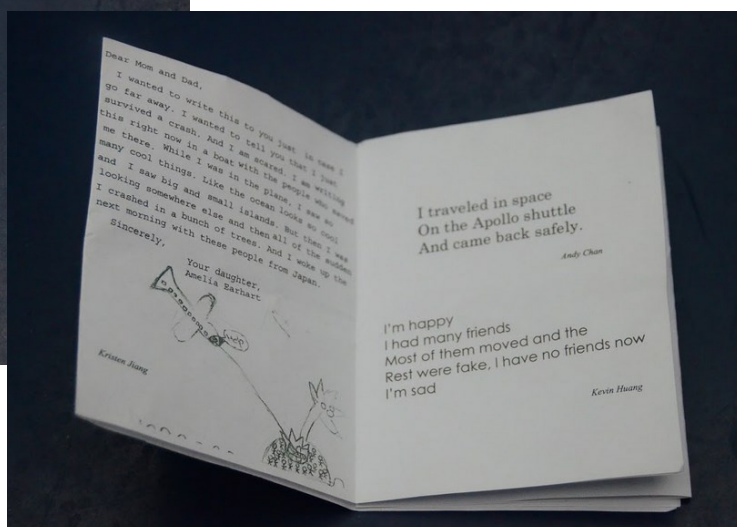 Dear Mom and Dad,
I wanted to write this to you just in case I
go far away. I wanted to tell you that I just
survived a crash. And I am scared. I am writing
this right now in a boat with the people who saved
me there. While I was in the plane, I saw so
many cool things. Like the ocean looks so cool
and I saw big and small islands. But then I was
looking somewhere else and then all of the sudden
I crashed in a bunch of trees. And I woke up the
next morning with these people from Japan.
Sincerely,
Your daughter,
Amelia Earhart
Kristen Jiang
I traveled in space
On the Apollo shuttle
And came back safely.
Andy Chan
I'm happy
I had many friends
Most of them moved and the
Rest were fake, I have no friends now
I'm sad
Kevin Huang